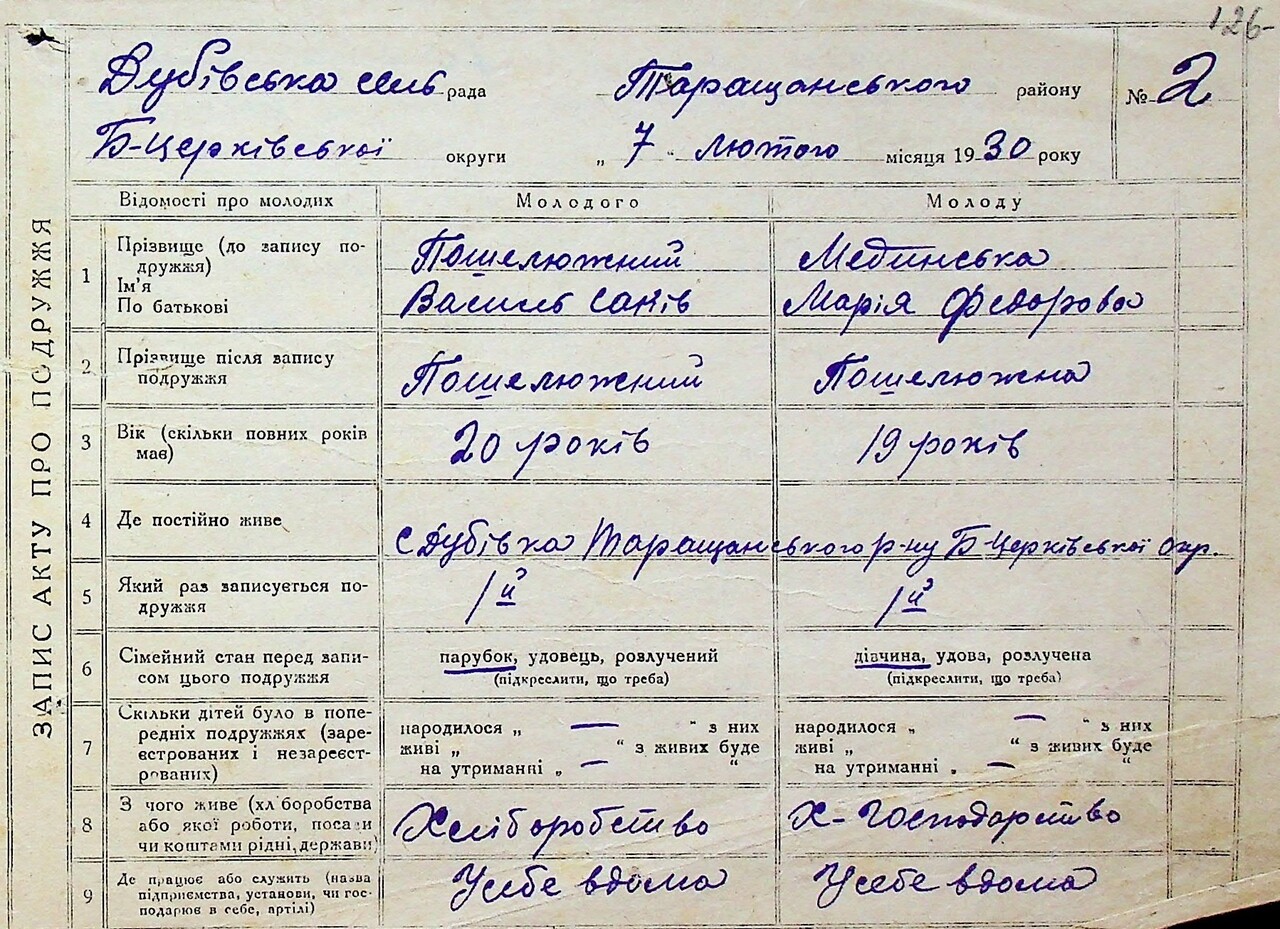 126
Дубівська сель рада Таращанського району № 2
Б-Церківської округи „ 7 " лютого місяця 1930 року
ЗАПИС АКТУ ПРО ПОДРУЖЖЯ
Відомості про молодих Молодого Молоду
1 Прізвище (до запису по- Пошелюжний Мединська
дружжя)
Ім'я
По батькові Василь Саків Марія Федорова
2 Прізвище після запису
подружжя Пошелюжний Пошелюжна
3 Вік (скільки повних років
має) 20 років 19 років
4 Де постійно живе
с Дубівка Таращанського р-ну Б-Церківської окр.
5 Який раз записується по-
дружжя 1й 1й
6 Сімейний стан перед запи- парубок, удовець, розлучений дівчина, удова, розлучена
сом цього подружжя (підкреслити, що треба) (підкреслити, що треба)
7 Скільки дітей було в попе-
редніх подружжах (заре- народилося „ — “ з них народилося „ — “ з них
єстрованих і незареєст- живі „ “ з живих буде живі „ “ з живих буде
рованих) на утриманні „ — “ на утриманні „ — “
8 З чого живе (хл боробства
або якої роботи, посади Хліборобство Х-господарство
чи коштами рідні, держави)
9 Де працює або служить (назва
підприємства, установи, чи гос- Усебе вдома Усебе вдома
подарює в себе, артілі)